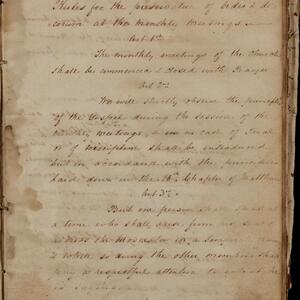 Rules for the preservation of order & de
corum at the monthly meetings
Art 1st
The monthly meetings of the Church
shall be commenced & closed with Prayer
Art 2nd
We will strictly observe the principles
of the Gospel during the session of the
monthly meetings, & in no case of
of discipline shall be introduced
but in accordance with the principles
laid down in the 18th Chapter of Matthew
Art 3rd
But one person shall
a time who shall arise from
address the Moderator
& while so doing the other members shall
pay a respectful attention to
is